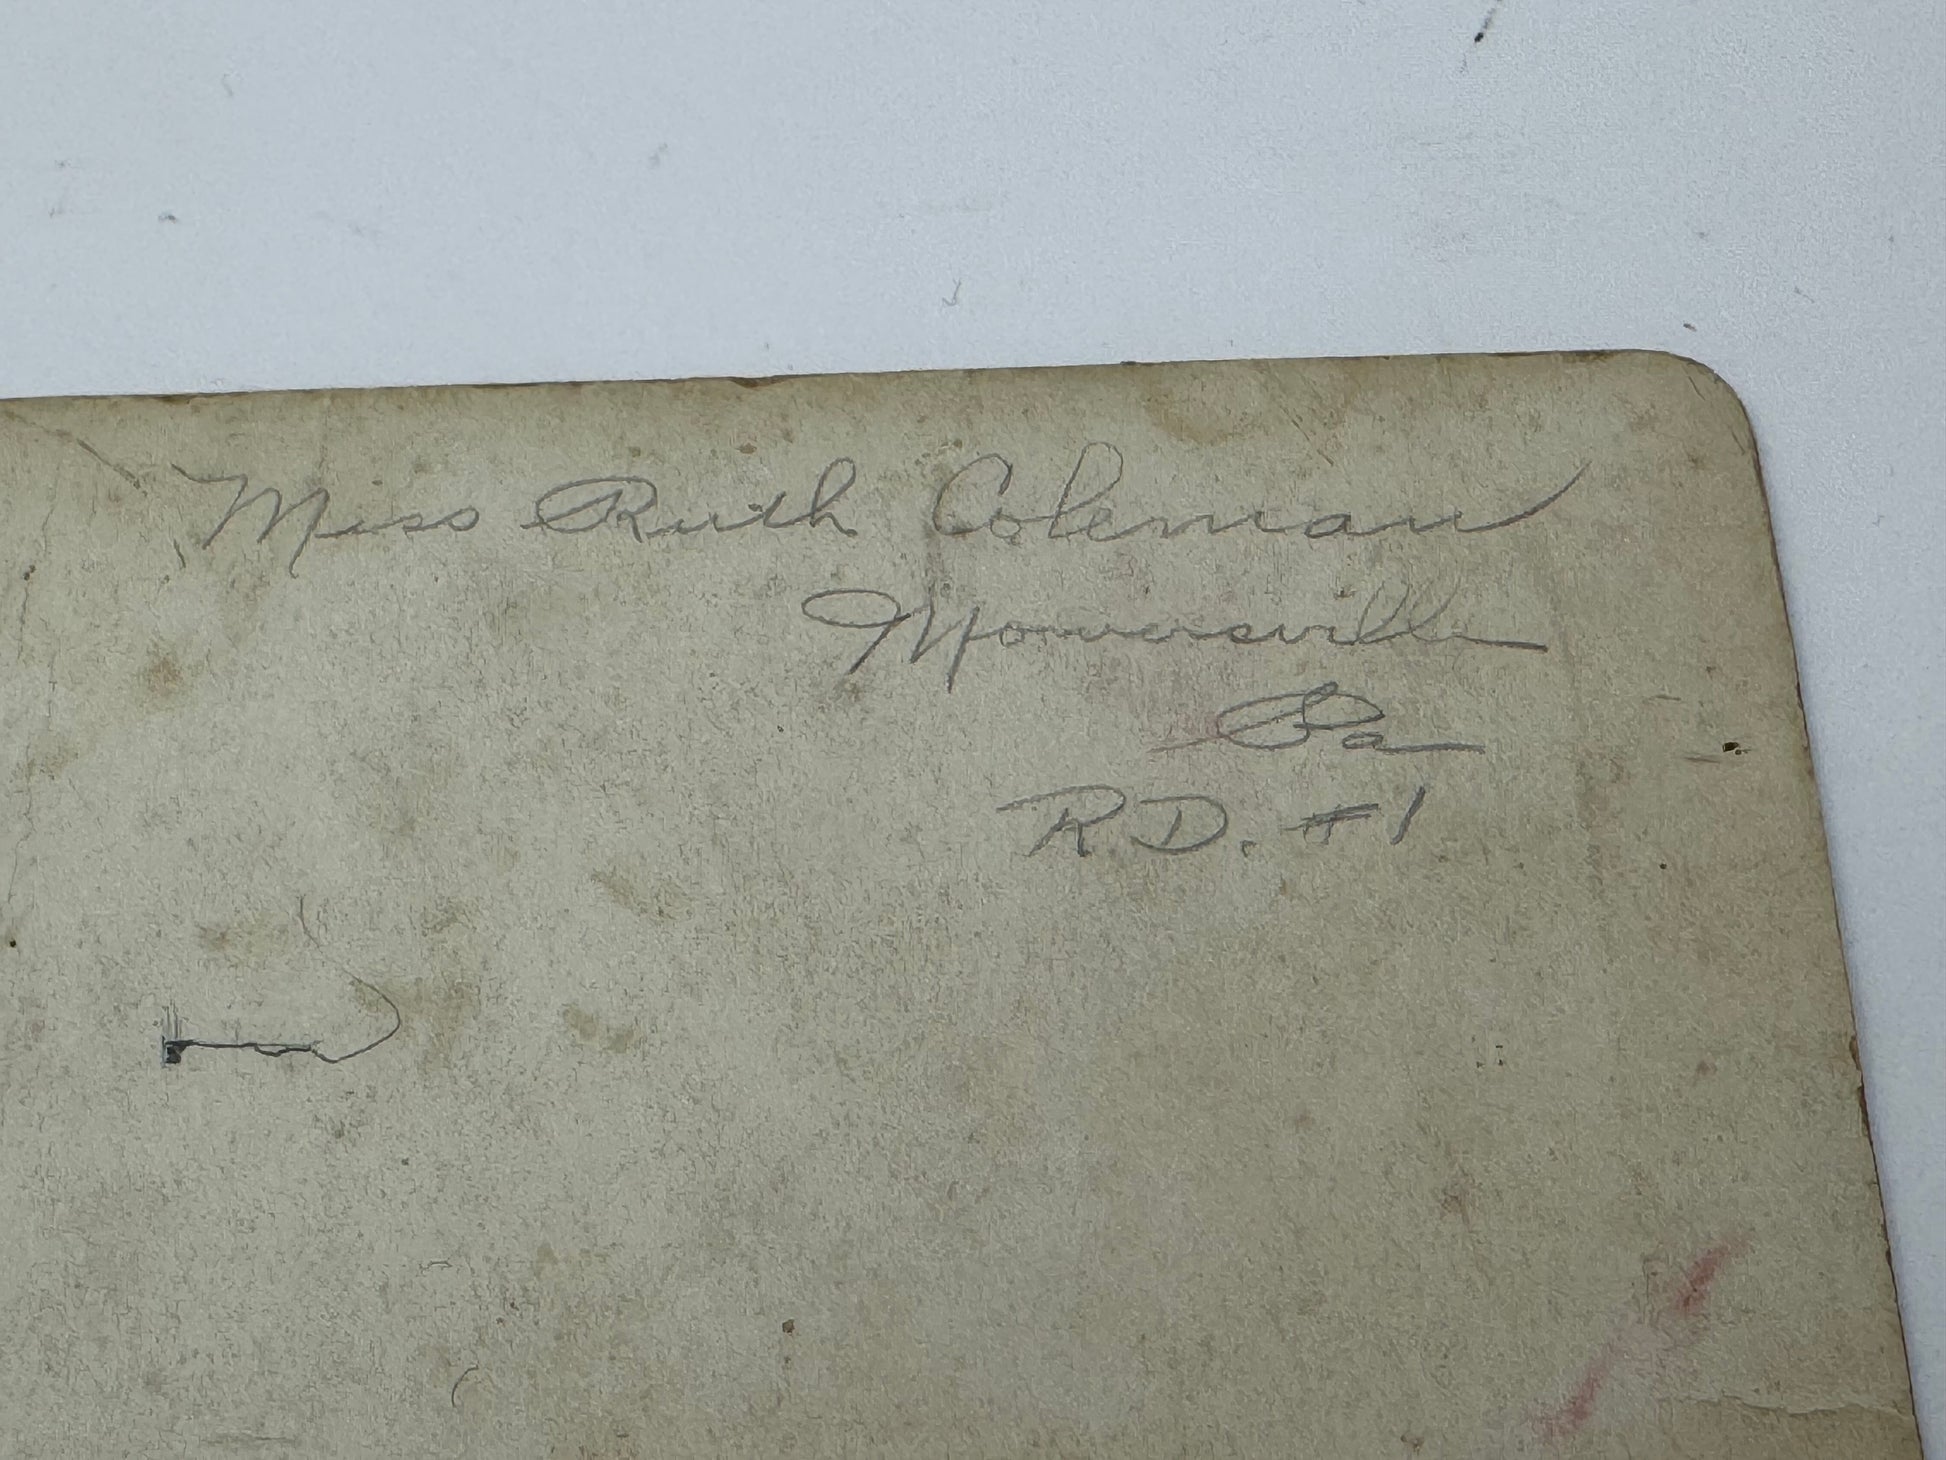 Miss Ruth Coleman
Mowersville
Pa
R.D. #1